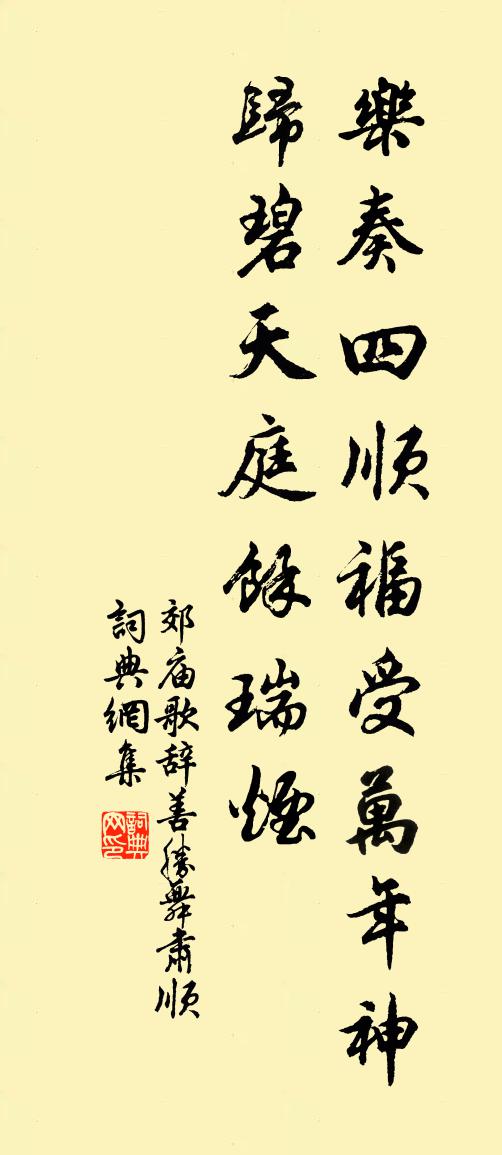 樂奏四順福受萬年神
歸碧天庭餘瑞煙
郊庙歌辞善勝舞肅順
詞典網集
詞典
网印